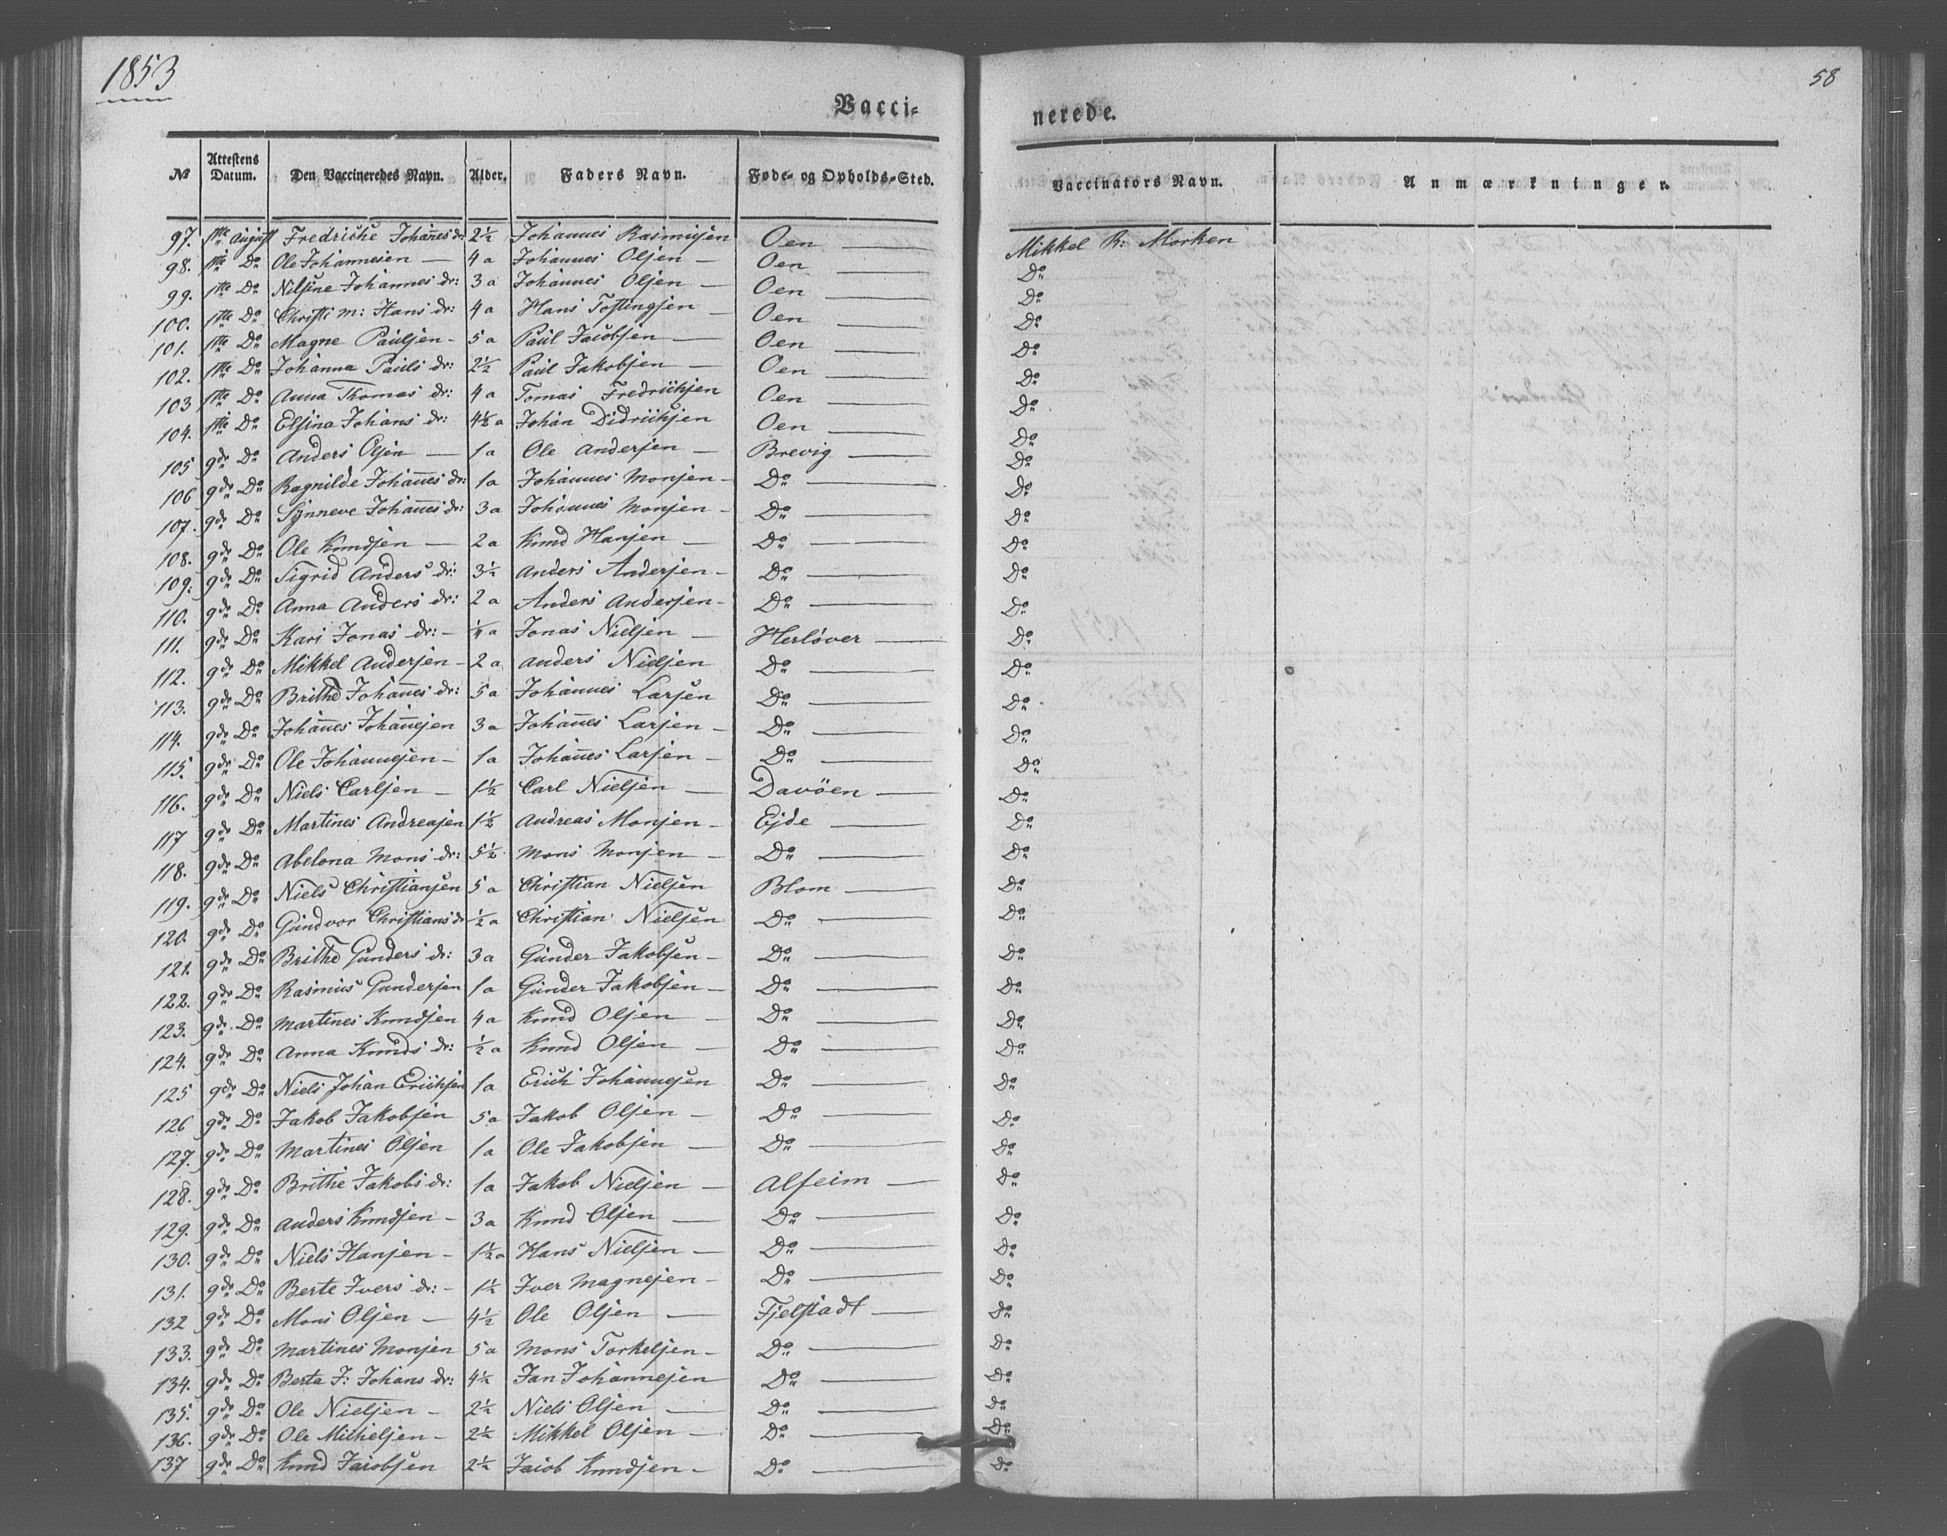 1853
58
Vacci-
nerede.
№ Attestens Datum. Den Vaccineredes Navn. Alder. Faders Navn. Føde- og Opholds-Sted. Vaccinators Navn. Anmærkninger.
97. 1ste August Fredriche Johan̄esdr 2½ Johannes Rasmusen Oen — Mikkel R: Morken
98. 1ste Do Ole Johannesen — 4 a Johannes Olsen — Oen — Do
99. 1ste Do Nilsine Johannes dr: 3 a Johannes Olsen — Oen — Do
100. 1ste Do Christi m: Hans dr: 4 a Hans Tostingsen Oen — Do
101. 1ste Do Magne Paulsen - 5 a Paul Jacobsen — Oen — Do
102. 1ste Do Johanna Pauls dr: 2½ Paul Jakobsen — Oen — Do
103 1ste Do Anna Thomas dr: 4 a Tomas Fredriksen Oen — Do
104. 1ste Do Elsina Johans dr: 4½ a Johan Didriksen Oen — Do
105 9de Do Anders Olsen — 1 a Ole Andersen — Brevig — Do
106 9de Do Ragnilde Johan̄es dr: 1 a Johannes Monsen - Do — Do
107. 9de Do Synneve Johan̄es dr: 3 a Johannes Monsen - Do — Do
108. 9de Do Ole Knudsen — 2 a Knud Hansen — Do — Do
109. 9de Do Sigrid Anders dr: 3½ Anders Andersen - Do — Do
110. 9de Do Anna Anders dr: 2 a Anders Andersen - Do — Do
111. 9de Do Kari Jonas dr: - a Jonas Nielsen — Herløver — Do
112. 9de Do Mikkel Andersen - 2 a Anders Nielsen Do — Do
113. 9de Do Brithe Johan̄es dr: 5 a Johannes Larsen Do — Do
114. 9de Do Johan̄es Johan̄esen 3 a Johan̄es Larsen - Do — Do
115. 9de Do Ole Johannesen - 1 a Johan̄es Larsen - Do — Do
116. 9de Do Niels Carlsen - 1½ Carl Nielsen — Davöen — Do
117 9de Do Martines Andreasen 1½ Andreas Monsen - Ejde — Do
118. 9de Do Abelona Mons dr: 5½ Mons Monsen - Do — Do
119. 9de Do Niels Christiansen 5 a Christian Nielsen Blom — Do
120. 9de Do Gundvor Christians dr ½ a Christian Nielsen Do — Do
121. 9de Do Brithe Gunders dr: 3 a Gunder Jakobsen - Do — Do
122. 9de Do Rasmus Gundersen 1 a Gunder Jakobsen - Do — Do
123. 9de Do Martines Knudsen 4 a Knud Olsen — Do — Do
124. 9de Do Anna Knuds dr: ½ a Knud Olsen — Do — Do
125 9de Do Niels Johan Erichsen 1 a Erich Johannesen Do — Do
126 9de Do Jakob Jakobsen 5 a Jakob Olsen - Do — Do
127. 9de Do Martines Olsen 1 a Ole Jakobsen — Do — Do
128. 9de Do Brithe Jakobs dr: 1 a Jakob Nielsen — Alfeim — Do
129. 9de Do Anders Knudsen - 3 a Knud Olsen — Do — Do
130. 9de Do Niels Hansen - 1½ a Hans Nielsen — Do — Do
131. 9de Do Berte Ivers dr: - 1½ Iver Magnesen - Do — Do
132 9de Do Mons Olsen — 4½ Ole Olsen — Fjelstadt — Do
133. 9de Do Martines Monsen 5 a Mons Torkelsen - Do — Do
134. 9de Do Berta J: Johans dr: 4½ Jan Johannesen Do — Do
135. 9de Do Ole Nielsen - 2½ Niels Olsen — Do — Do
136. 9de Do Ole Michelsen - 2½ Mikkel Olsen - Do — Do
137 9de Do Knud Jacobsen 2½ Jacob Knudsen - Do — Do